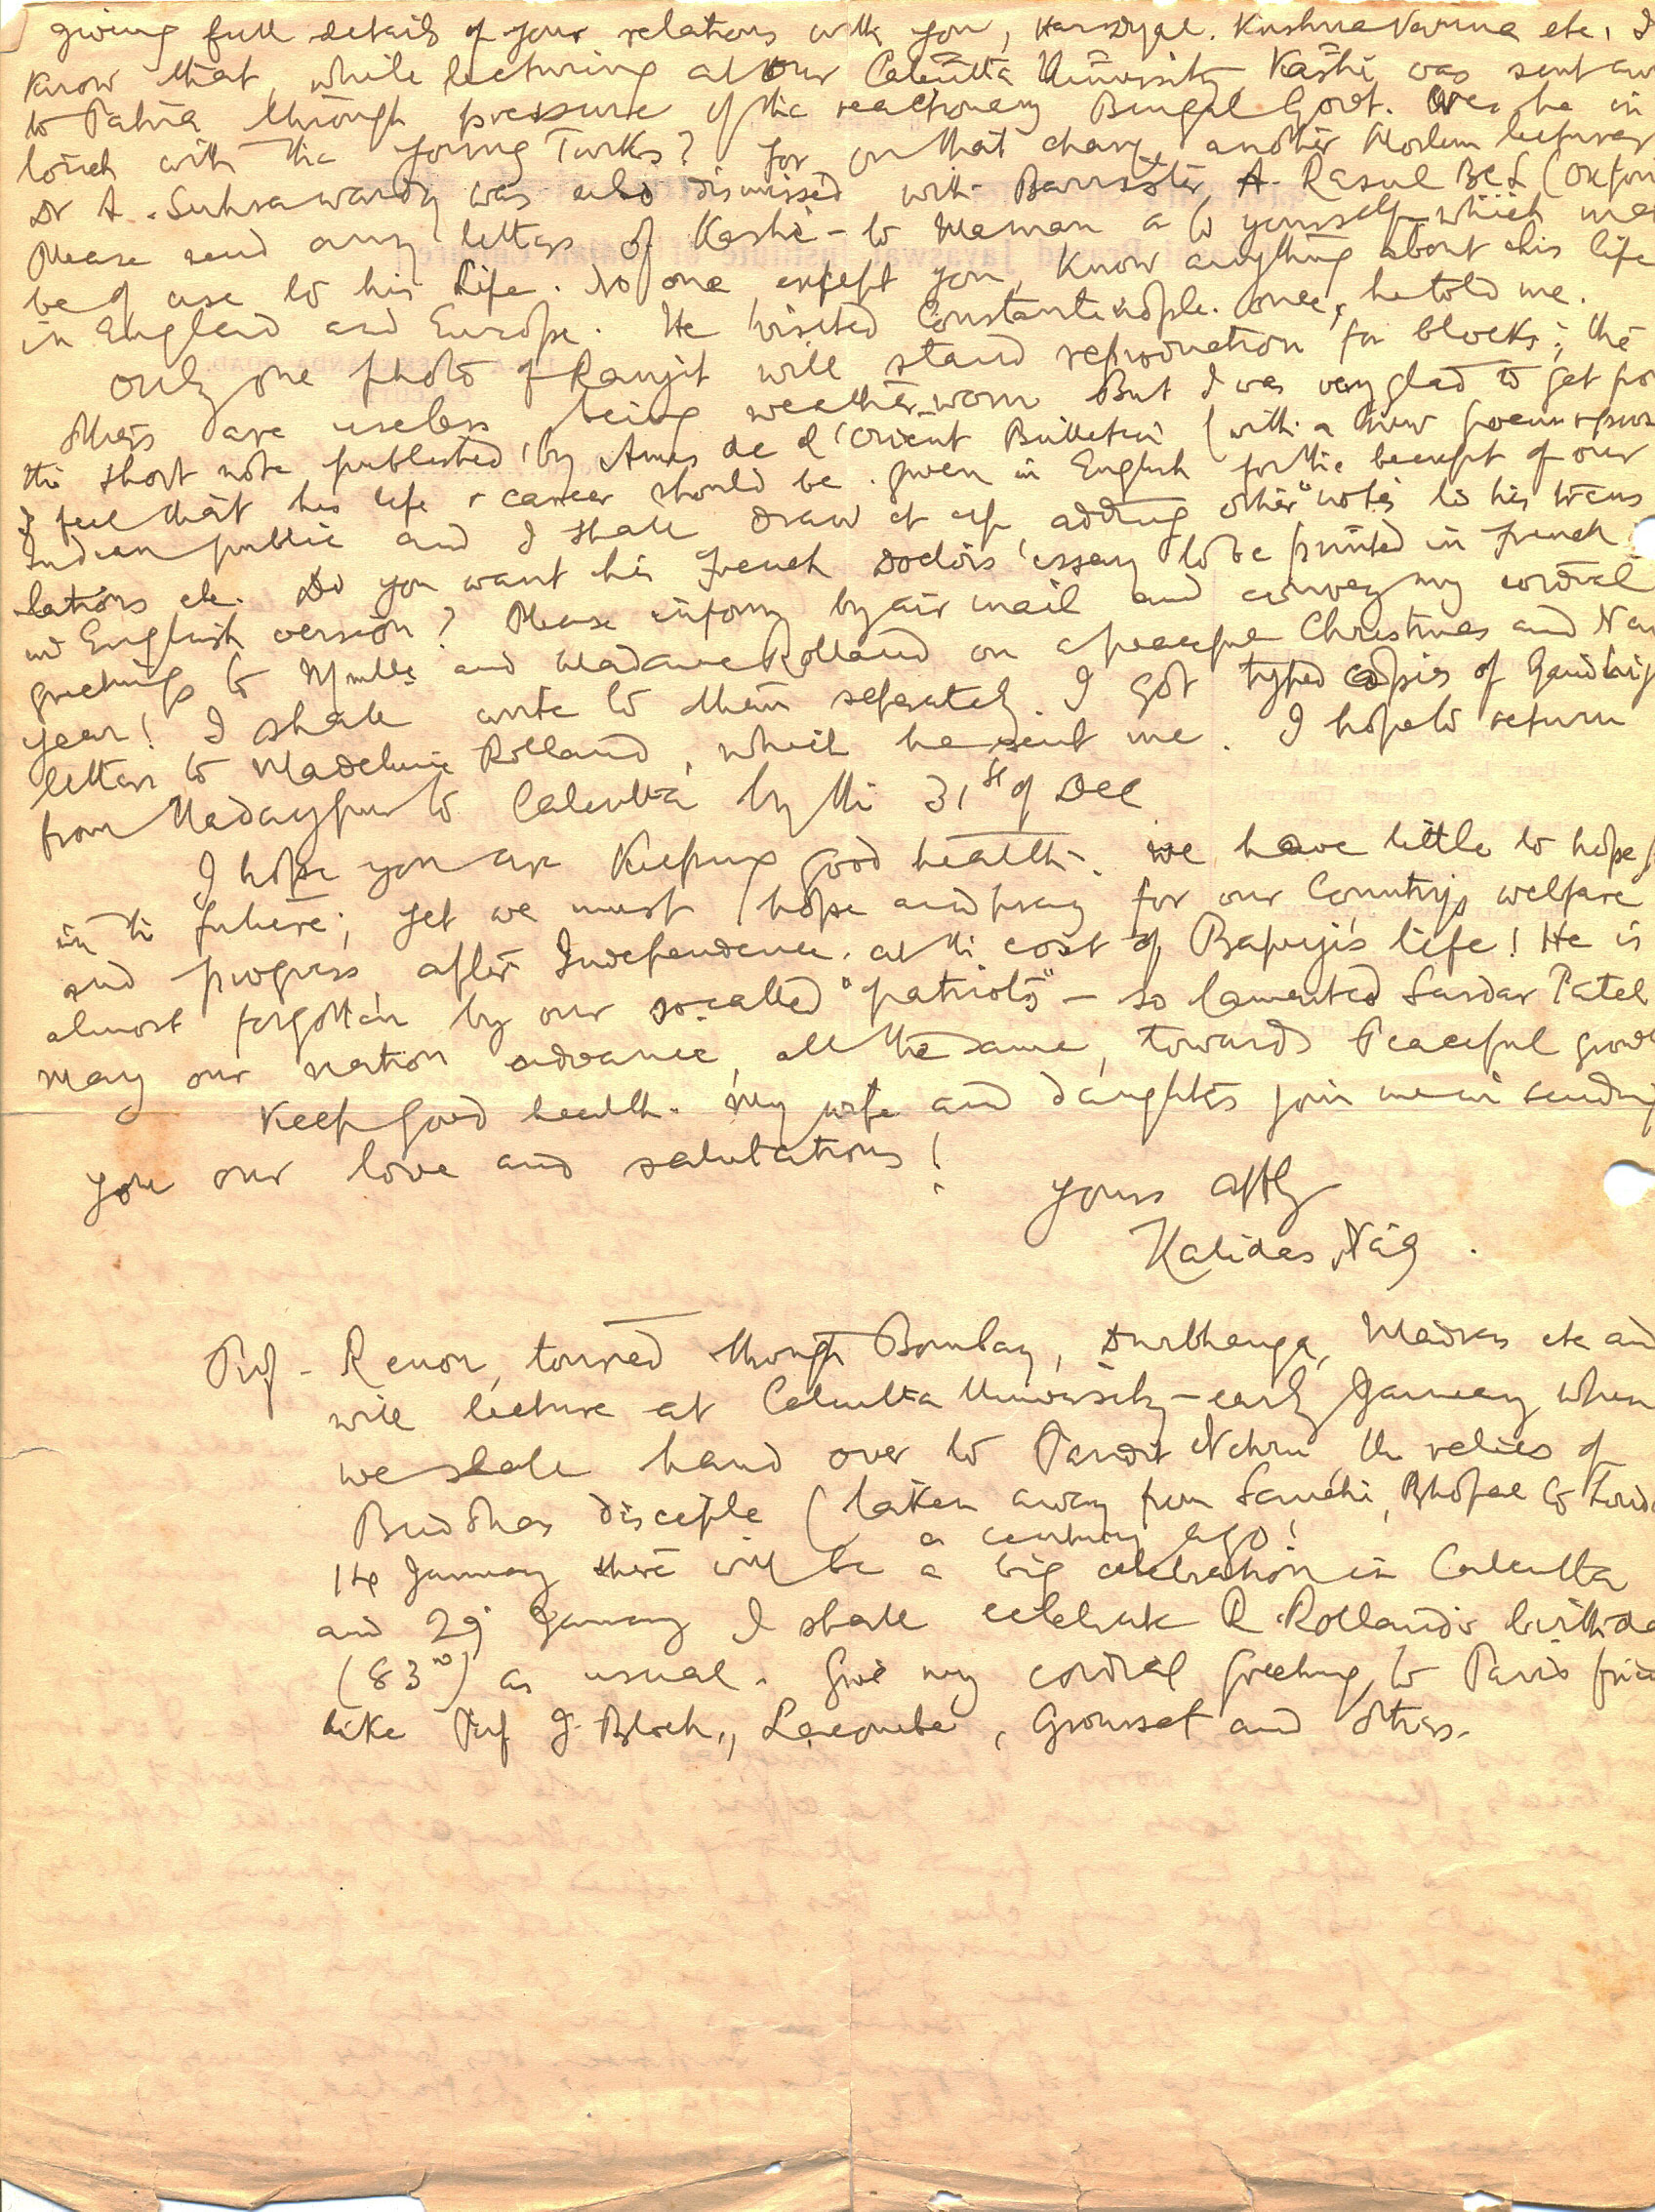 giving full details of your relations with you, Hardyal. Krishna Varma etc. I
know that, while lecturing at our Calcutta University, Kashi was sent aw
to Patna through pressure of the reactionary Bengal Govt. Was he in
touch with the Young Turks? For on that charge another Moslem lecturer
Dr A. Suhrawardy was also dismissed with Barrister A. Rasul BCL (Oxfor
Please send any letters of Kashi - to Maman a to yourself which ma
be of use to his Life. No one except you, know anything about his life
in England and Europe. He visited Constantinople once, he told me.
Only one photo of Ranjit will stand reproduction for blocks; the
others are useless being weather-worn But I was very glad to get fro
the short note published by Amis de l'Orient Bulletin (with a few poems
I feel that his life & career should be given in English for the benefit of our
Indian public and I shall draw it up, adding other notes to his trans
lations etc. Do you want his French Doctors' essay to be printed in French
in English version? Please inform by air mail and convey my cordial
greetings to Mmlle and Madame Rolland on a peaceful Christmas and New
year! I shall write to them separately. I got typed copies of Gandhiji
letters to Madeleine Rolland, which he sent me. I hope to return
from to Calcutta by the 31st of Dec
I hope you are keeping good health. We have little to hope
in the future; yet we must hope and pray for our Country's welfare
and progress after Independence. at the cost of Bapuji's life! He is
almost forgotten by our so-called "patriots" - so lamented Sardar Patel
May our nation advance, all the same, towards Peaceful grow
Keep good health. My wife and daughters join me in sending
you our love and salutations!
Yours affly
Kalidas Nag.
Prof. Renou, toured through Bombay, Durbhanga, Madras etc and
will lecture at Calcutta University - early January when
we shall hand over to Pandit Nehru the relics of
Buddhas disciple (taken away from Sanchi, Bhopal to Lond
a century ago!
14 January there will be a big celebration in Calcutta
and 29 January I shall celebrate R. Rolland's birthda
(83rd) as usual. Give my cordial greeting to Paris frie
like Prof J. Bloch, Lacombe, Grousset and others.